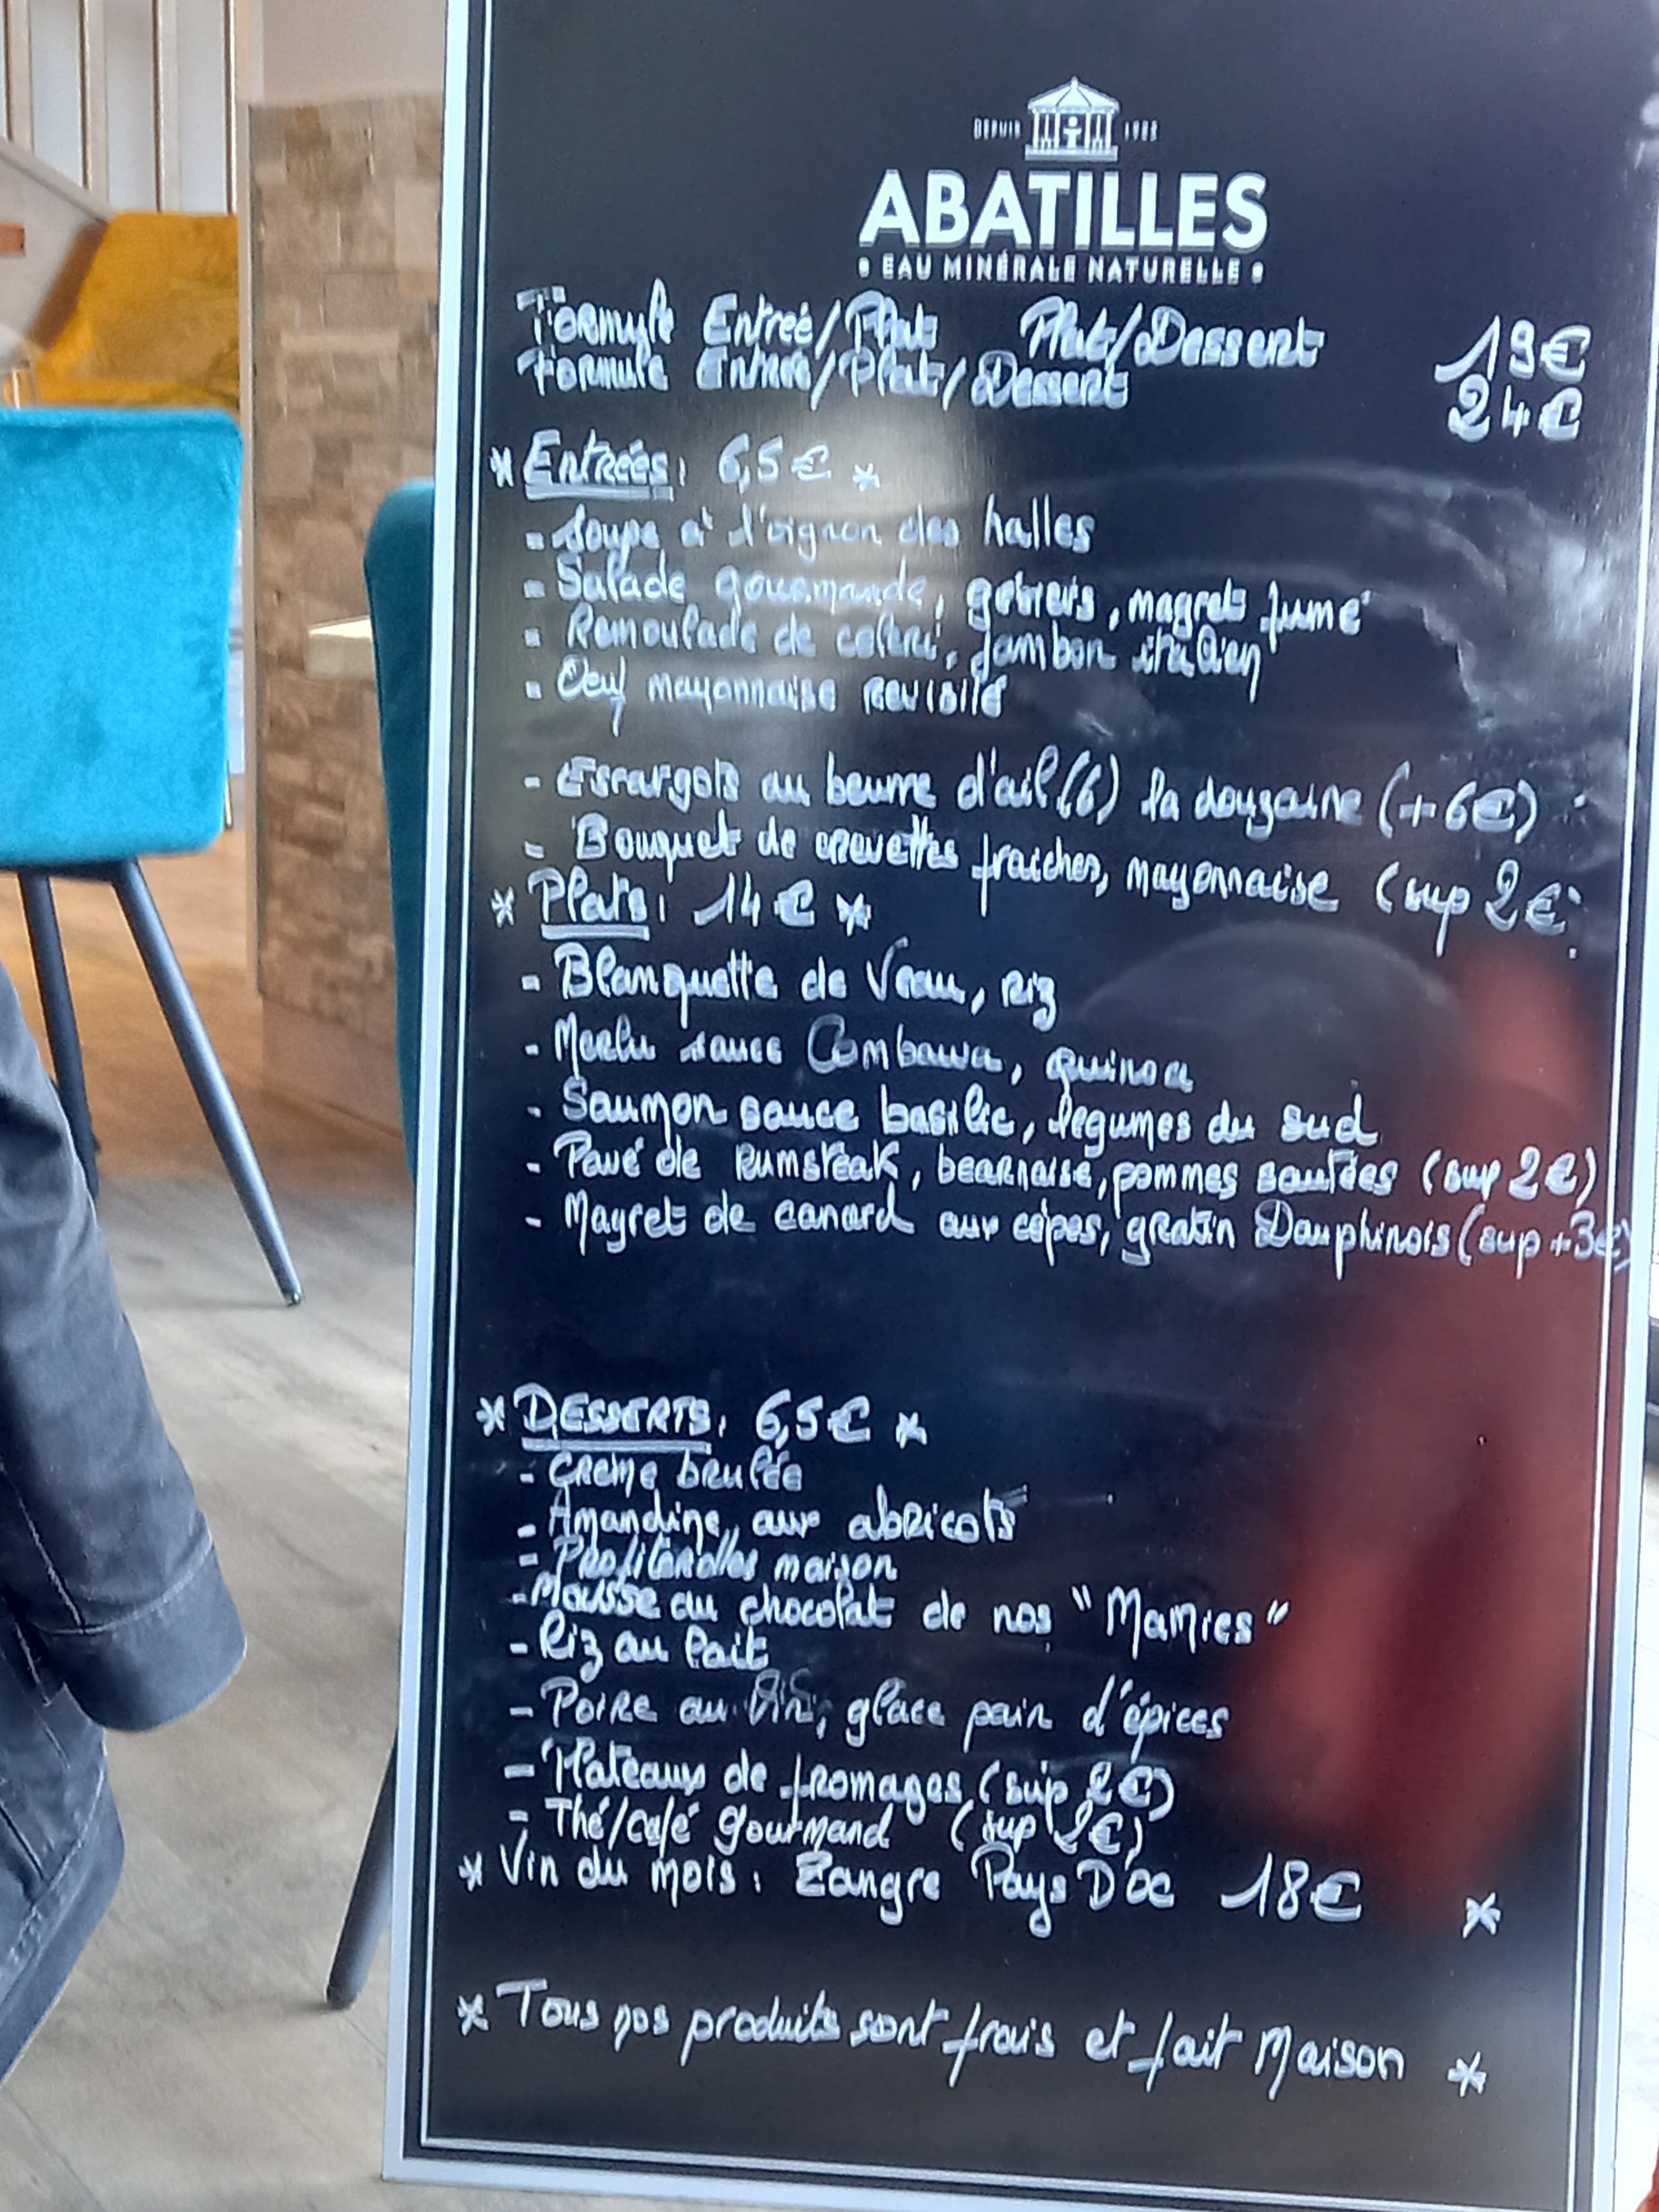 DEPUIS 1925
ABATILLES
• EAU MINÉRALE NATURELLE •
Formule Entreé/Plat Plat/Dessert 19€
Formule Entrée/Plat/Dessert 24€
* Entrées: 6,5€ *
- Soupe à l'oignon des halles
- Salade gourmande, gesiers, magret fumé
- Remoulade de celeri, Jambon italien
- Oeuf mayonnaise revisité
- Escargots au beurre d'ail (6) la douzaine (+6€)
- Bouquet de crevettes fraiches, mayonnaise (sup 2€)
* Plats: 14€ *
- Blanquette de Veau, riz
- Merlu sauce Combawa, quinoa
- Saumon sauce basilic, légumes du sud
- Pavé de Rumsteak, bearnaise, pommes sautées (sup 2€)
- Magret de canard aux cépes, gratin Dauphinois (sup +3€)
* Desserts: 6,5€ *
- Creme brulée
- Amandine aux abricots
- Profiterolles maison
- Mousse au chocolat de nos "Mamies"
- Riz au lait
- Poire au Vin, glace pain d'épices
- Plateaux de fromages (sup 2€)
- Thé/café gourmand (sup 2€)
* Vin du mois: Zangre Pays D'oc 18€ *
* Tous nos produits sont frais et fait Maison *